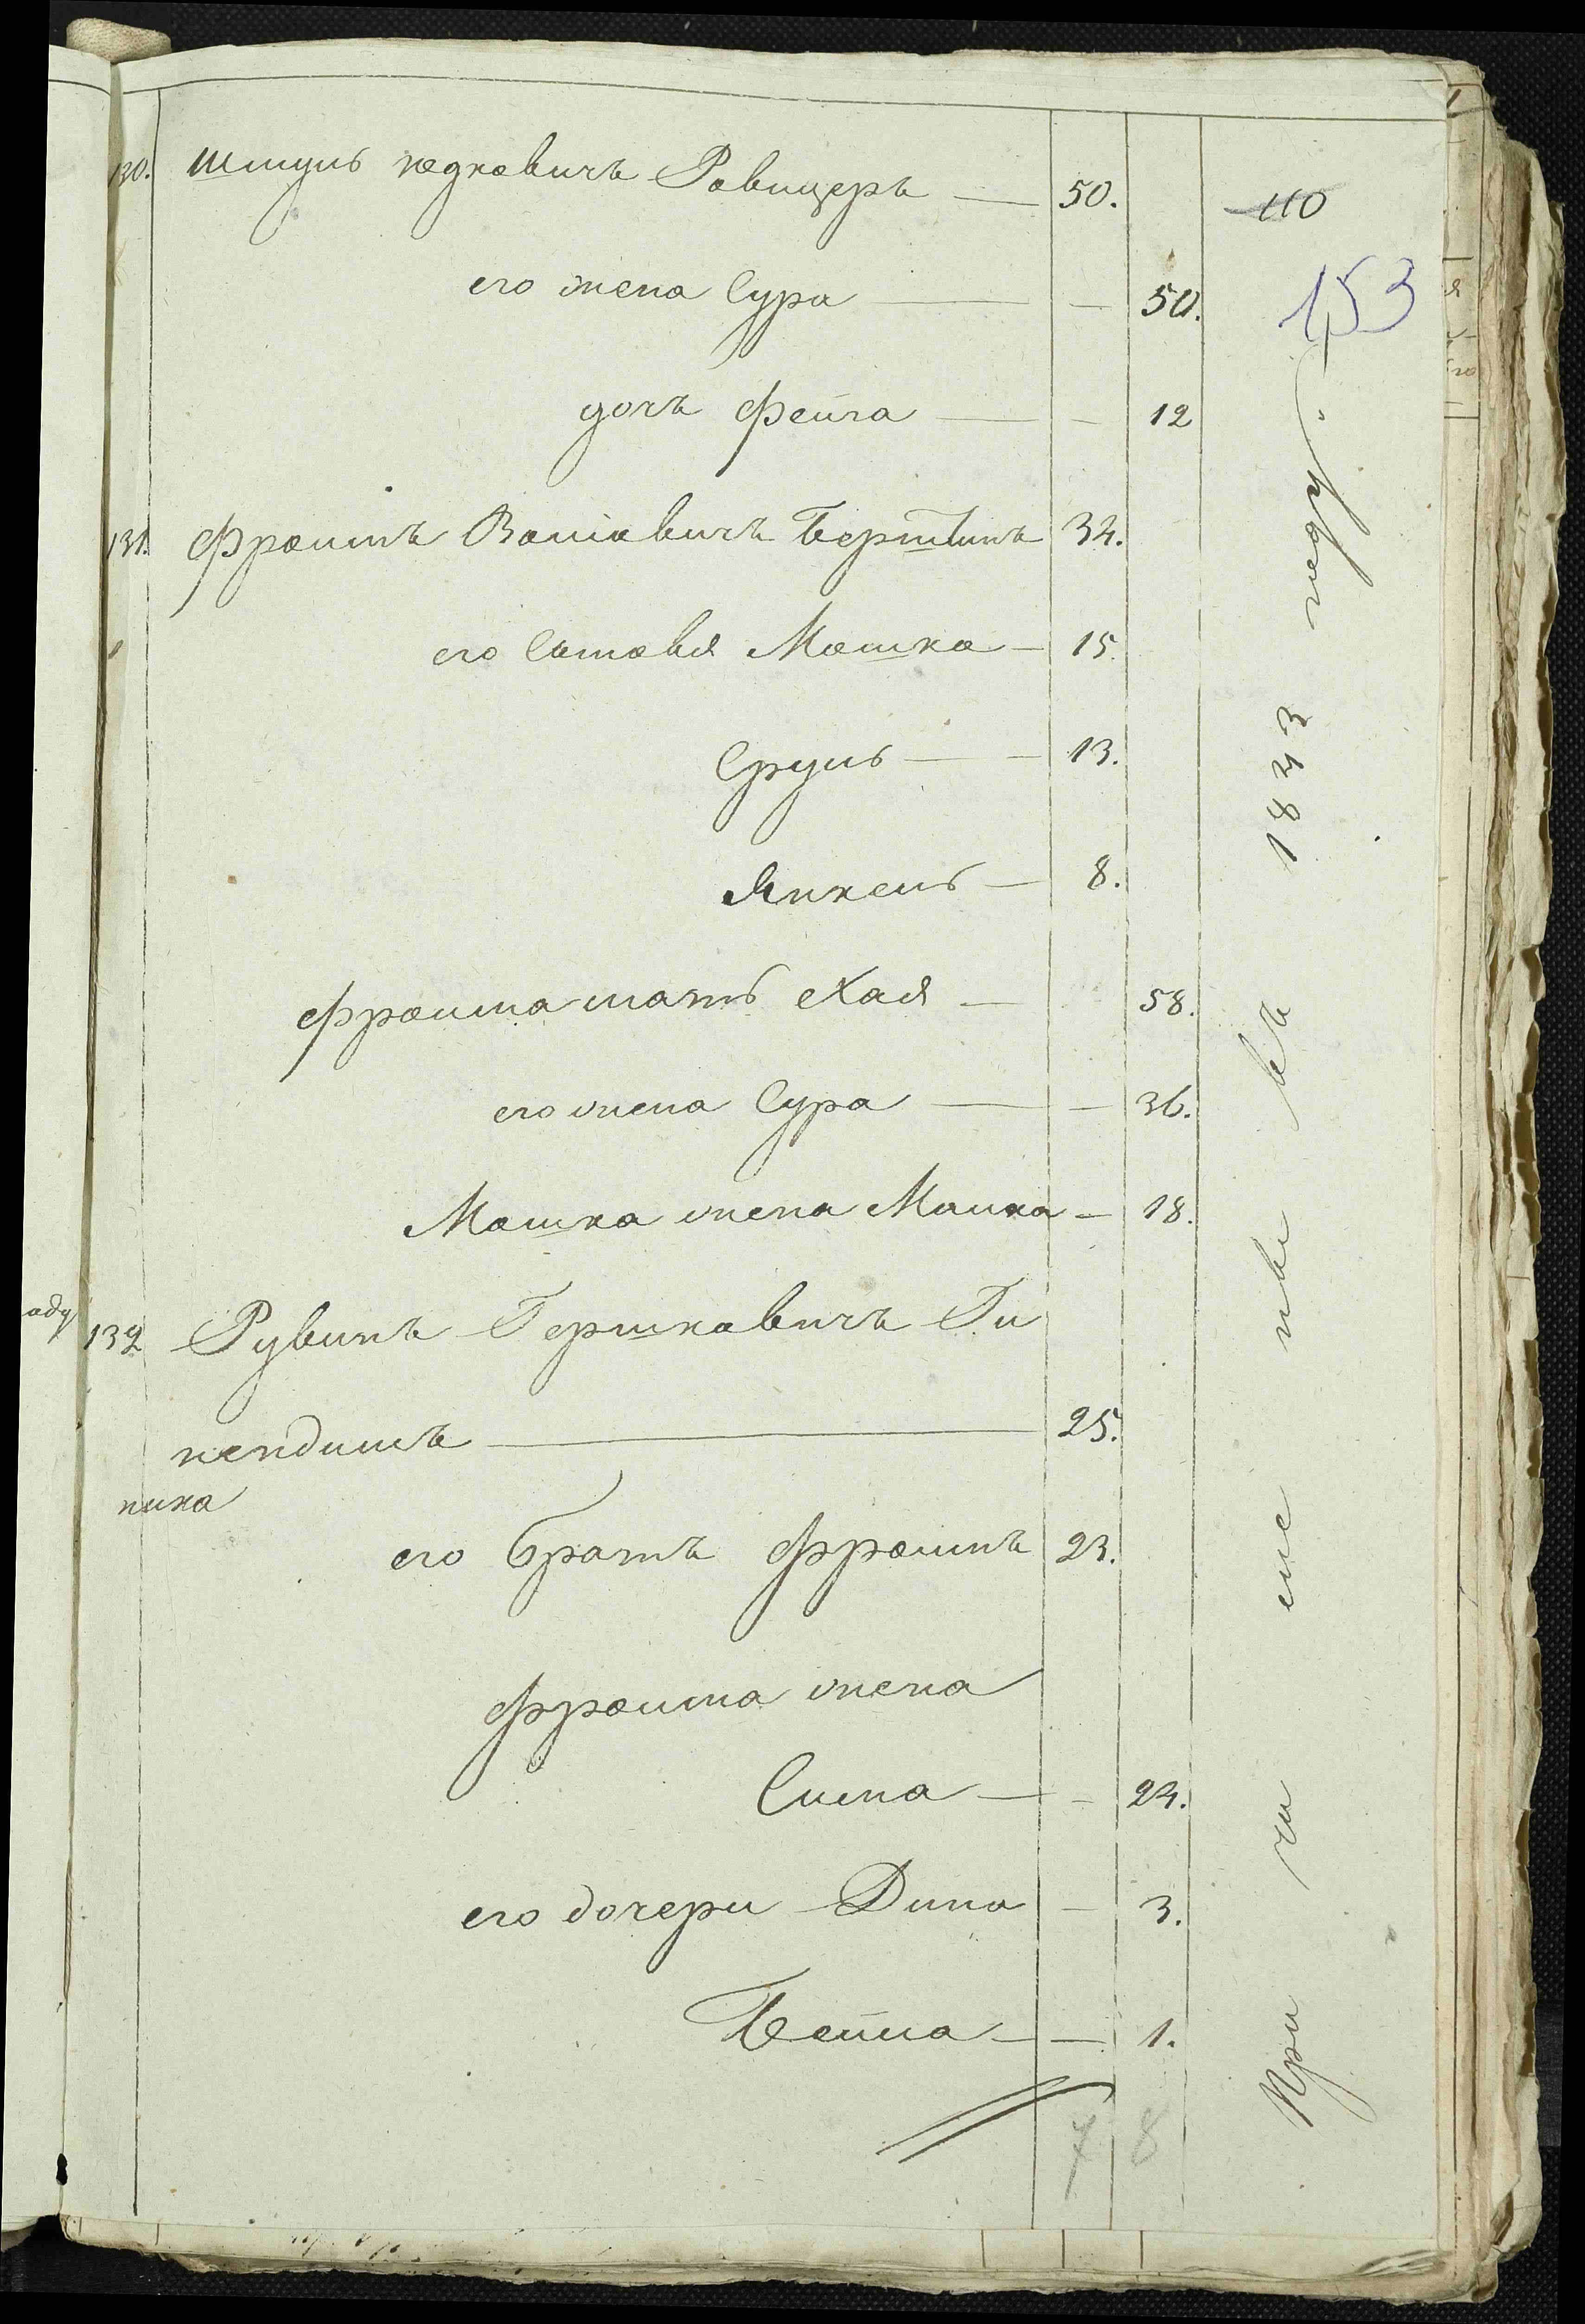 110
153
130. Шмуль юдковичъ Равицеръ — 50.
его жена Сура — — 50.
дочъ Фейга — — 12
131. Фроимъ Волковичъ Берштинъ 34.
его Сыновья Мошка — 15.
Сруль — — 13.
Янкель — 8.
Фроима мать Хая — 58.
его жена Сура — — 36.
Мошка жена Малка — 18.
132 Рувинъ Гершковичъ Ги
нендинъ — 25.
его братъ Фроимъ 23.
Фроима жена
Сима — — 24.
его дочери Дина — 3.
Бейла — — 1.
7 8
При чи сле ны въ 1843 году.